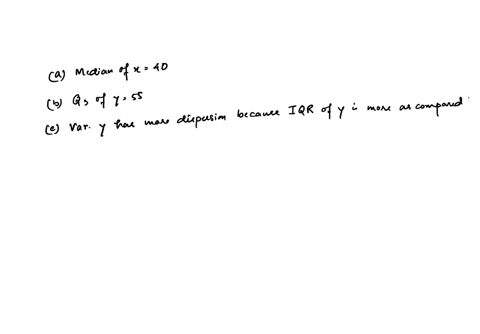 (a) Median of x = 40
(b) Q3 of y = 55
(c) Var. y has more dispersion because IQR of y is more as compared